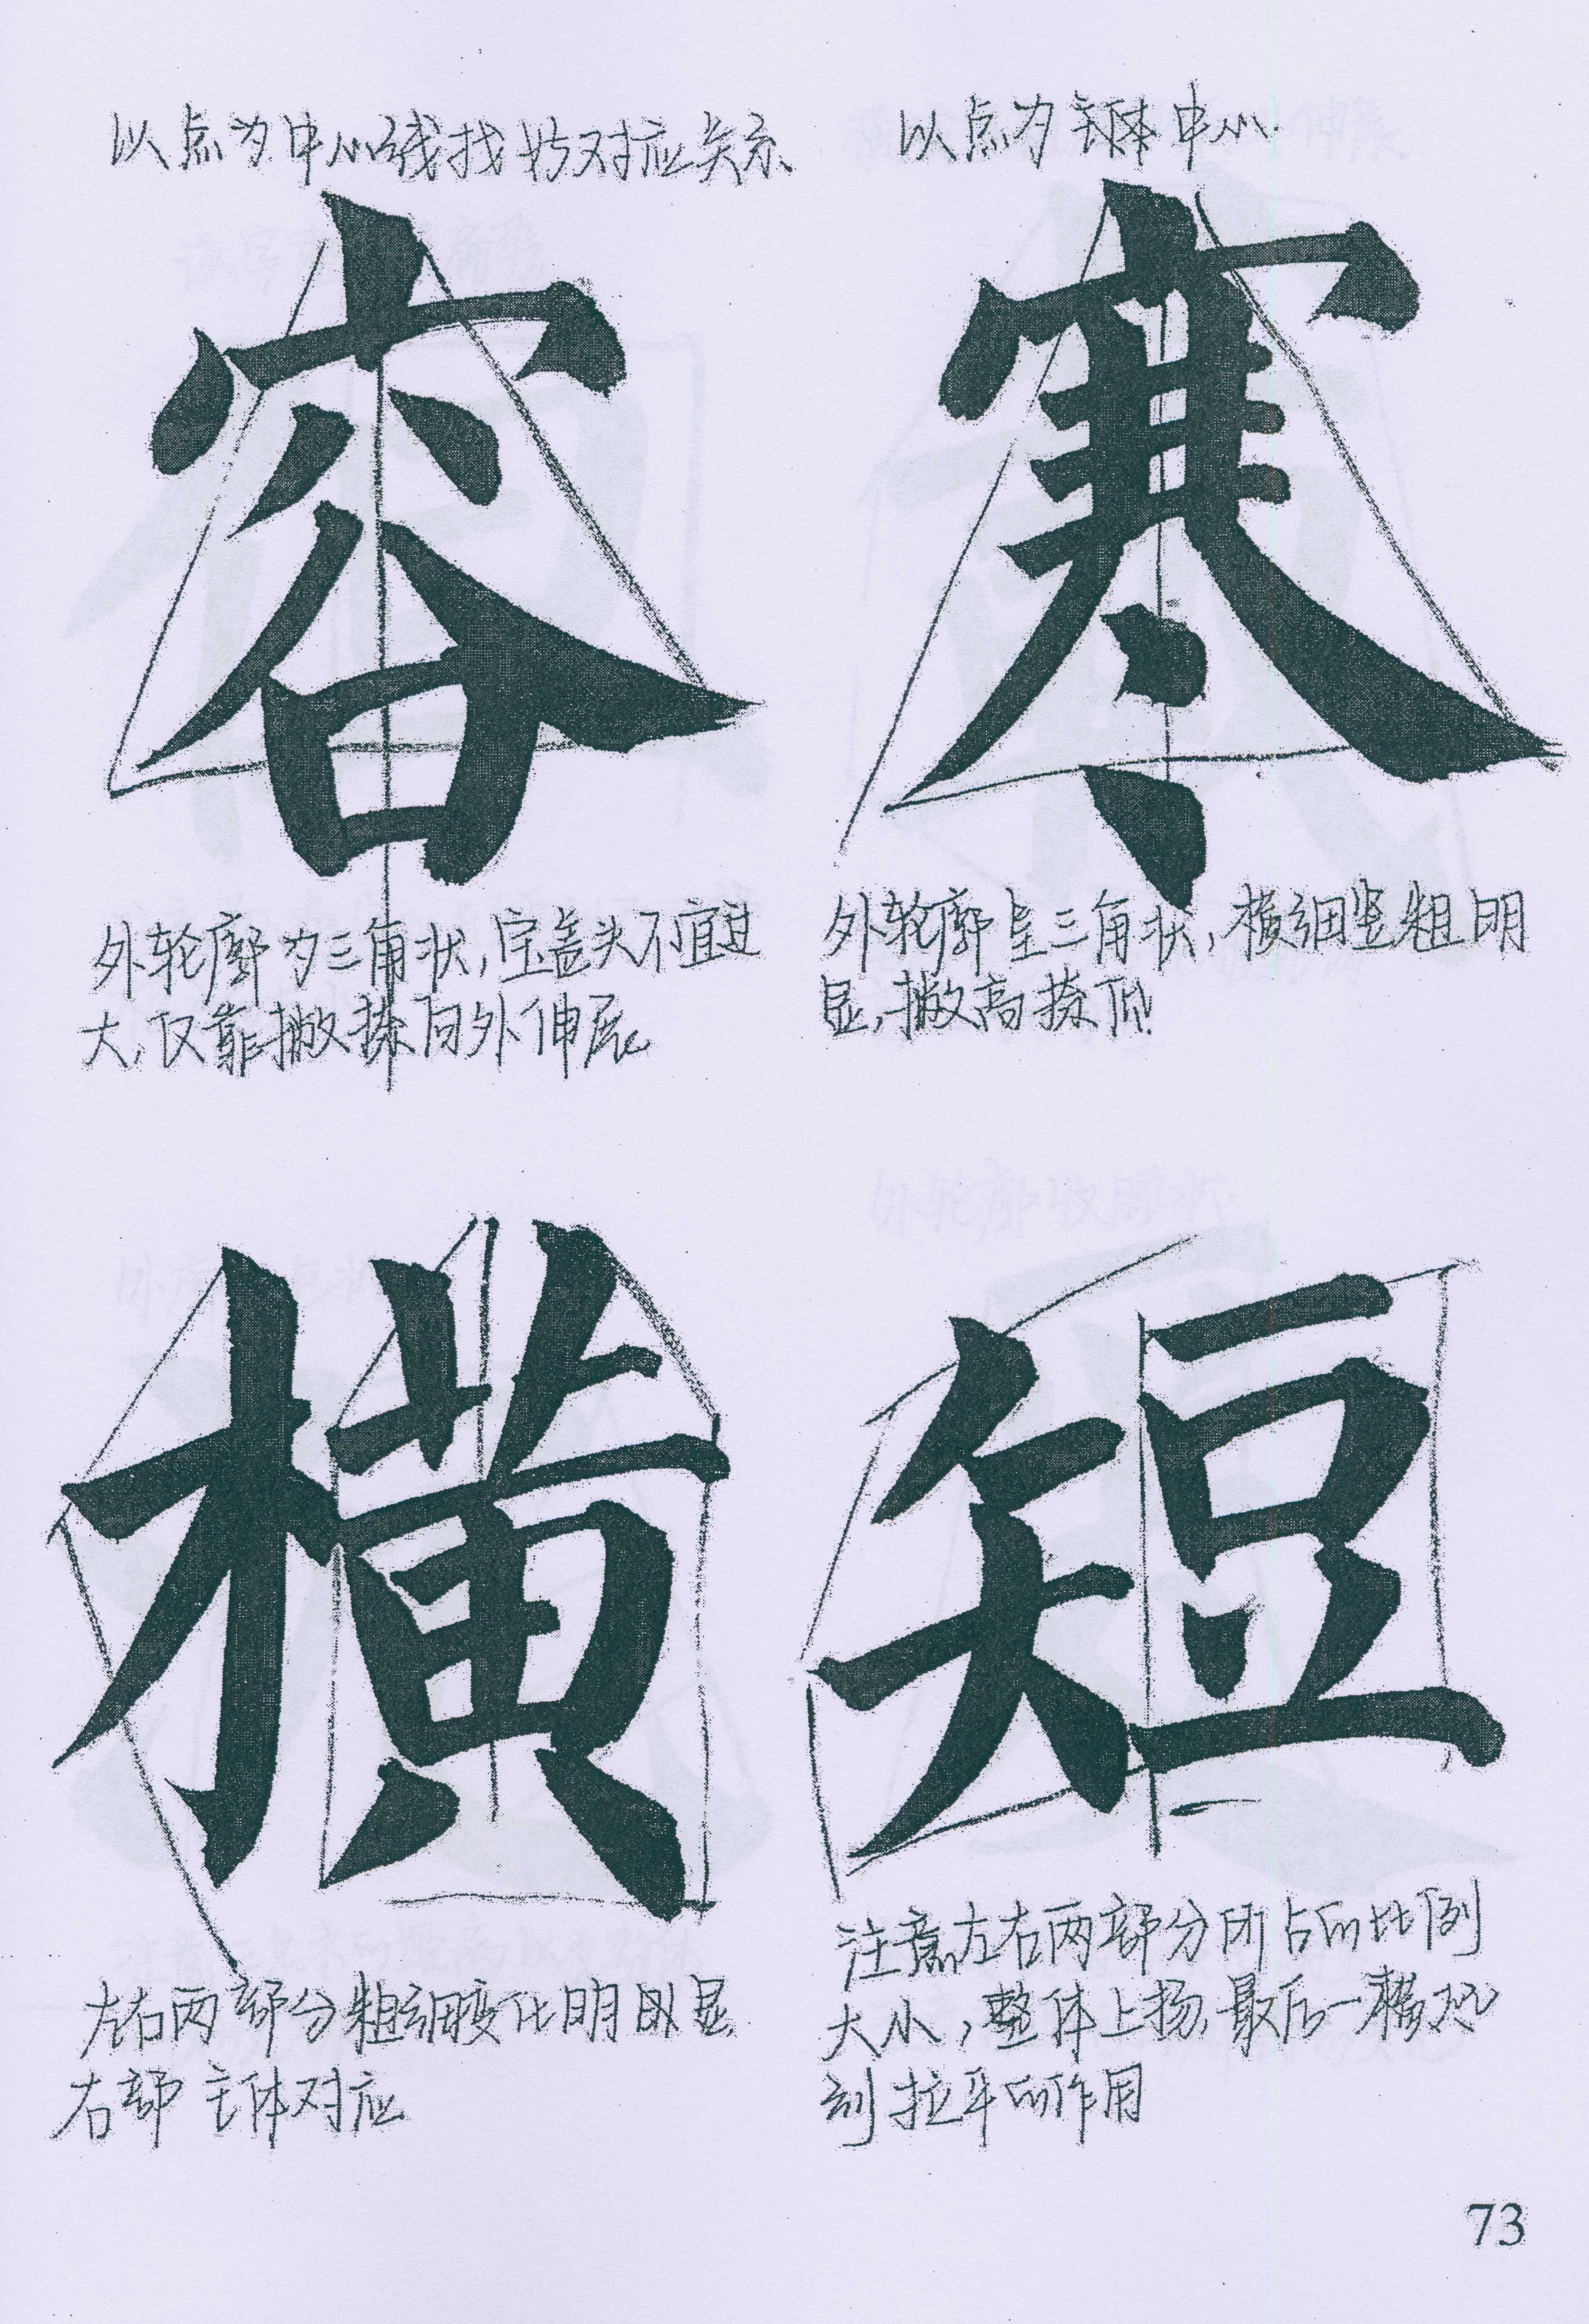 以点为中心线找好对应关系
以点为主体中心
容
寒
外轮廓为三角状,宝盖头不宜过
大,仅靠撇捺向外伸展
外轮廓呈三角状,横细竖粗明
显,撇高捺低
横
短
左右两部分粗细变化明显
右部主体对应
注意左右两部分所占的比例
大小,整体上扬,最后一横
刻拉平的作用
73